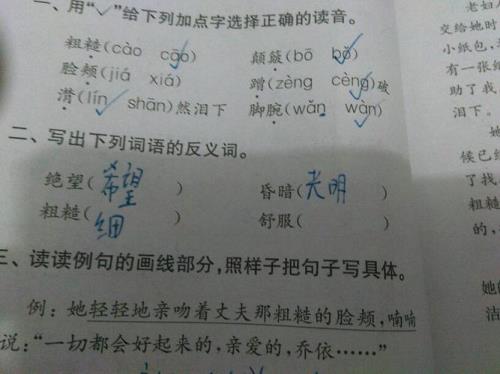 一、用“✓”给下列加点字选择正确的读音。
粗糙(cào cāo) 颠簸(bō bǒ)
脸颊(jiá xiá) 蹭(zèng cèng)破
潸(lín shān)然泪下 脚腕(wǎn wàn)
二、写出下列词语的反义词。
绝望(希望) 昏暗(光明)
粗糙(细) 舒服( )
三、读读例句的画线部分,照样子把句子写具体。
例:她轻轻地亲吻着丈夫那粗糙的脸颊,喃喃
说:“一切都会好起来的,亲爱的,乔依……”
老妇
交给她时
小纸包,
有一张
助了我
泪下。
候已
了找
粗糙
的,
她
洁